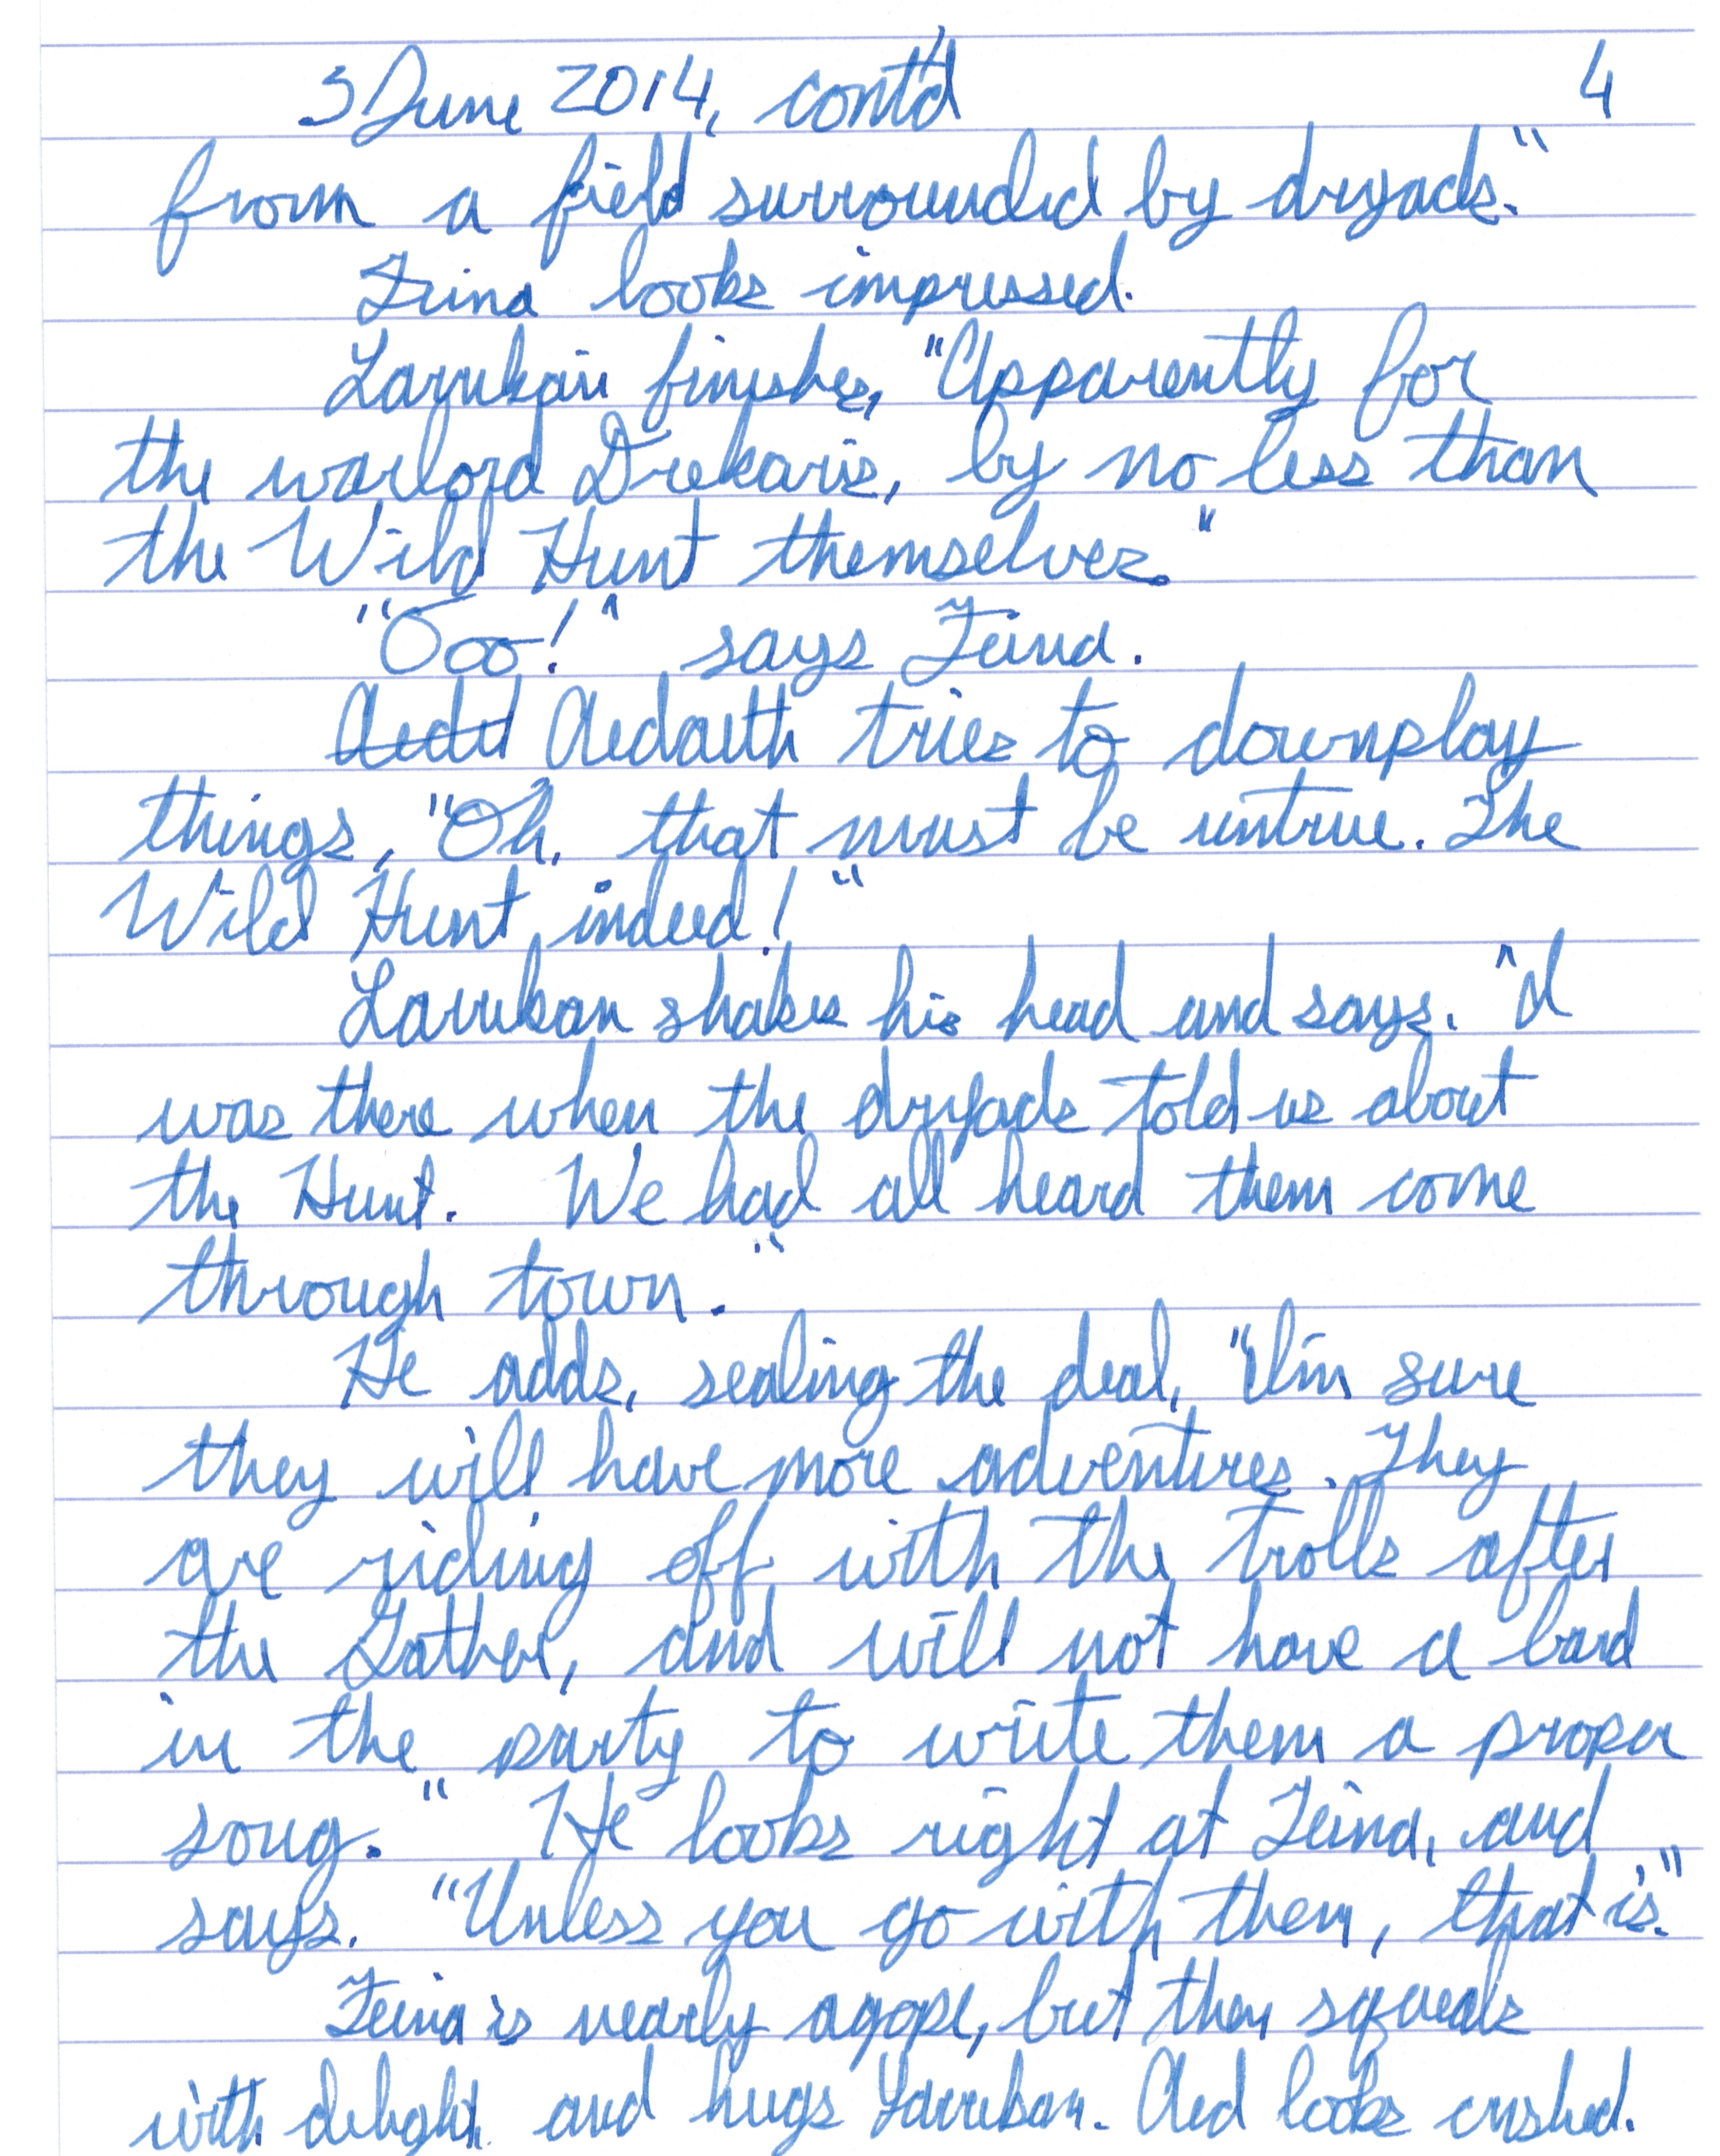 3 June 2014, cont'd 4
from a field surrounded by dryads."
Teina looks impressed.
Larrikan finishes, "Apparently for
the warlord Drekaris, by no less than
the Wild Hunt themselves."
"Ooo!" says Teina.
Aedaith tries to downplay
things, "Oh, that must be untrue. The
Wild Hunt indeed!"
Larrikan shakes his head and says. "I
was there when the dryads told us about
the Hunt. We had all heard them come
through town."
He adds, sealing the deal, "I'm sure
they will have more adventures. They
are riding off with the trolls after
the Gather, and will not have a bard
in the party to write them a proper
song." He looks right at Teina, and
says. "Unless you go with them, that is."
Teina is nearly agape, but then squeals
with delight and hugs Larrikan. Aed looks crushed.